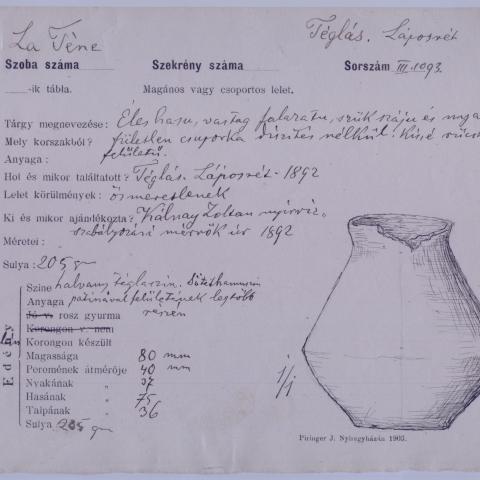 La Tène
Téglás. Láposrét
Szoba száma Szekrény száma Sorszám III. 1093.
-ik tábla. Magános vagy csoportos lelet.
Tárgy megnevezése: Éles hasu, vastag falazatu, szük száju és nya
Mely korszakból? fületlen csuporka diszités nélkül. Kissé
Anyaga: felületű.
Hol és mikor találtatott? Téglás. Láposrét - 1892
Lelet körülmények: ösmeretlenek
Ki és mikor ajándékozta? Kálnay Zoltán nyirviz-
szabályozási mérnök úr 1892
Méretei:
Sulya: 205 gr
Edény
Szine halvány téglaszin. Sötét
Anyaga patinával felületének legtöbb
Jó v. rosz gyurma részén
Korongon v. nem
Korongon készült
Magassága 80 mm
Peremének átmérője 40 mm
Nyakának " 37
Hasának " 75
Talpának " 36
Sulya 205 gr
1/1
Piringer J. Nyiregyházán 1903.